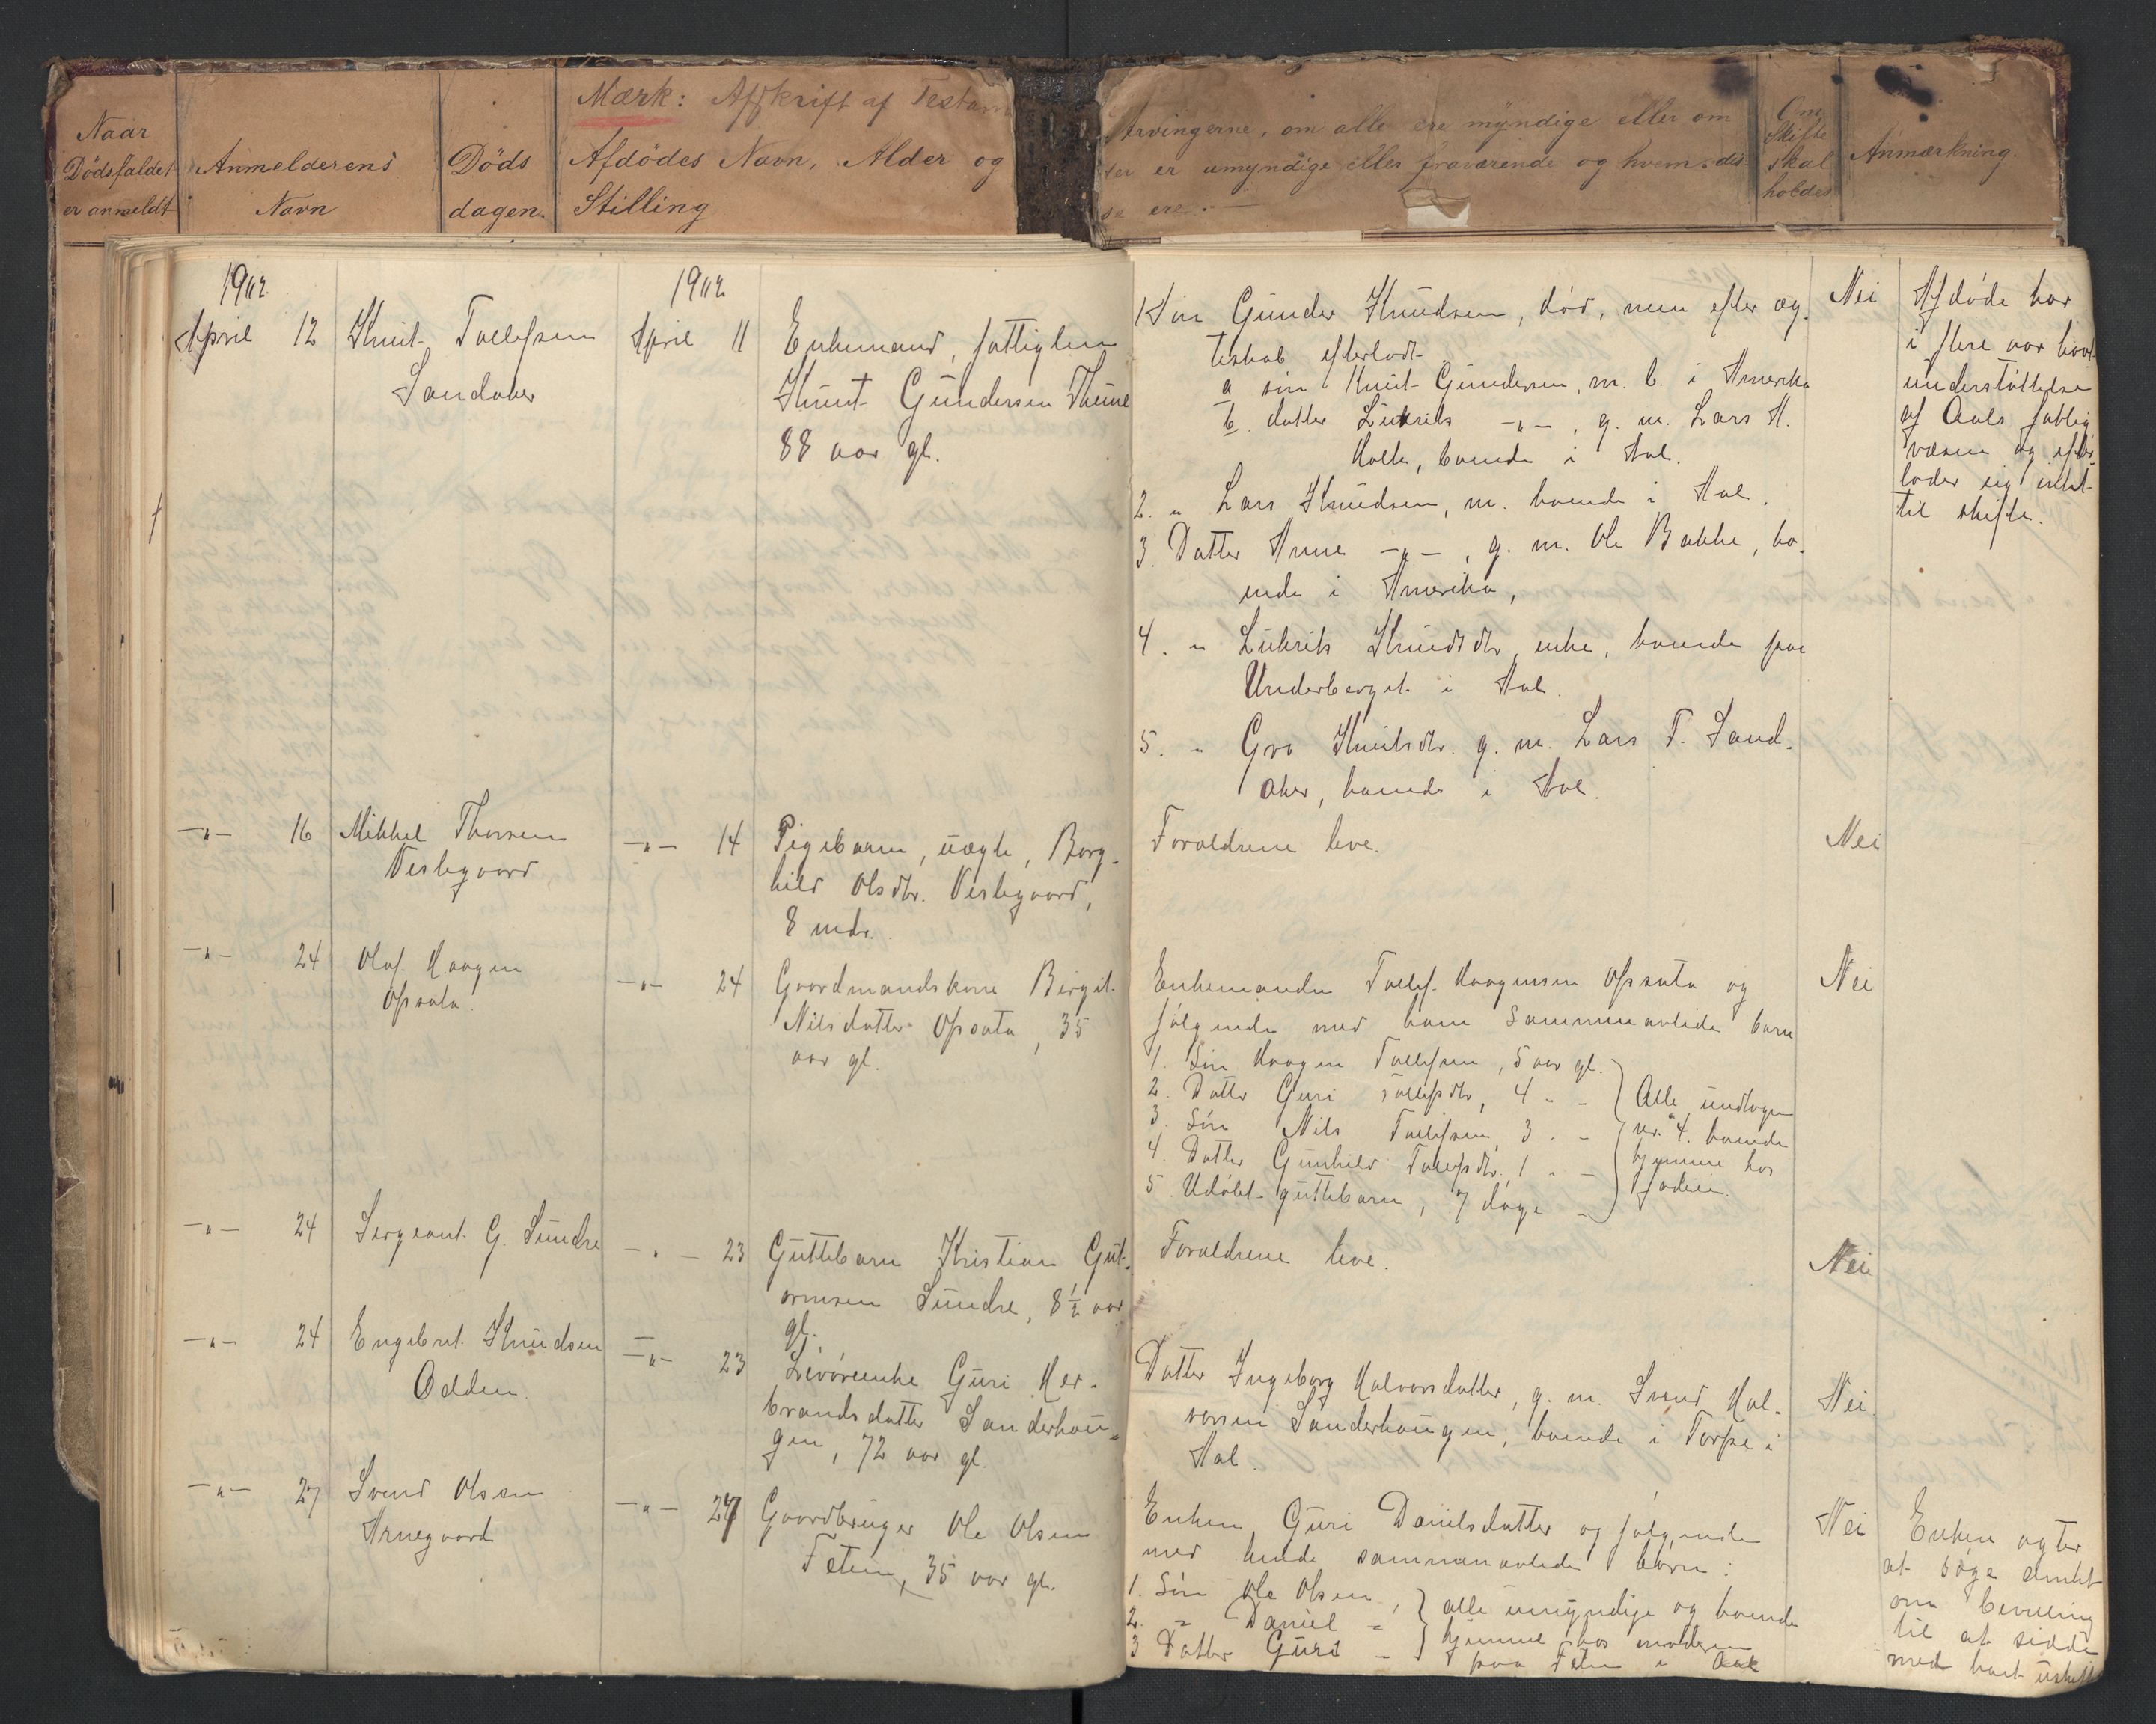 Mærk: Afskrift af Testam
Naar
Dödsfaldet
er anmeldt
Anmelderens
Navn
Döds
dagen.
Afdödes Navn, Alder og
Stilling
Arvingerne, om alle ere myndige eller om
er umyndige eller fraværende og hvem dis
se ere.
Om
Skifte
skal
holdes
Anmærkning.
1902.
April 12
Knut Tollefsen
Sandaker
1902
April 11
Enkemand, fattiglem
Knut Gundersen Thune
88 aar gl.
1. Søn Gunder Knudsen, død, men efter æg-
teskab efterladt
a søn Knut Gundersen, m. b. i Amerika
b. datter Lukrits -"-, g. m. Lars H.
Holte, boende i Aal.
2. " Lars Knudsen, m. boende i Aal.
3. Datter Anne -"-, g. m. Ole Bakke, bo-
ende i Amerika,
4. " Lukrits Knudsdtr, enke, boende paa
Underberget i Aal.
5. " Gro Knutsdtr. g. m. Lars T. Sand-
aker, boende i Aal.
Nei
Afdøde har
i flere aar havt
understøttelse
af Aals fattig
væsen og efter
lader sig intet
til skifte.
-"- 16
Mikkel Thorsen
Veslegaard,
-"- 14
Pigebarn, uægte, Borg-
hild Olsdtr. Veslegaard,
8 mdr.
Forældrene leve.
Nei
-"- 24
Olaf Haagen
Opsata
-"- 24
Gaardmandskone Birgit
Nilsdatter Opsata, 35
aar gl.
Enkemanden Tollef Haagensen Opsata og
følgende med ham sammenavlede barn
1. Søn Haagen Tollefsen, 5 aar gl.
2. Datter Guri Tollefsdtr, 4 " -
3. Søn Nils Tollefsen, 3 " -
4. Datter Gunhild Tollefsdtr, 1 " -
5. Udøbt guttebarn, 7 dage -
Alle undtagen
nr. 4. boende
hjemme hos
faderen.
Nei
-"- 24
Sergeant G. Sundre
-"- 23
Guttebarn Kristian Gut-
ormsen Sundre, 8½ aar
gl.
Forældrene leve.
Nei
-"- 24
Engebret Knudsen
Odden.
-"- 23
Livøreenke Guri Her-
brandsdatter Sanderhau-
gen, 72 aar gl.
Datter Ingeborg Halvorsdatter, g. m. Svend Hal-
vorsen Sanderhaugen, boende i Torpe i
Aal.
Nei
-"- 27
Svend Olsen
Arnegaard
-"- 27
Gaardbruger Ole Olsen
Feten, 35 aar gl.
Enken, Guri Danielsdatter og følgende
med hende sammenavlede børn:
1. Søn Ole Olsen,
2. " Daniel "
3 Datter Guri -
alle umyndige og boende
hjemme hos moderen
paa Feten i Aal
Nei
Enken agter
at søge amtet
om bevilling
til at sidde
med boet uskift